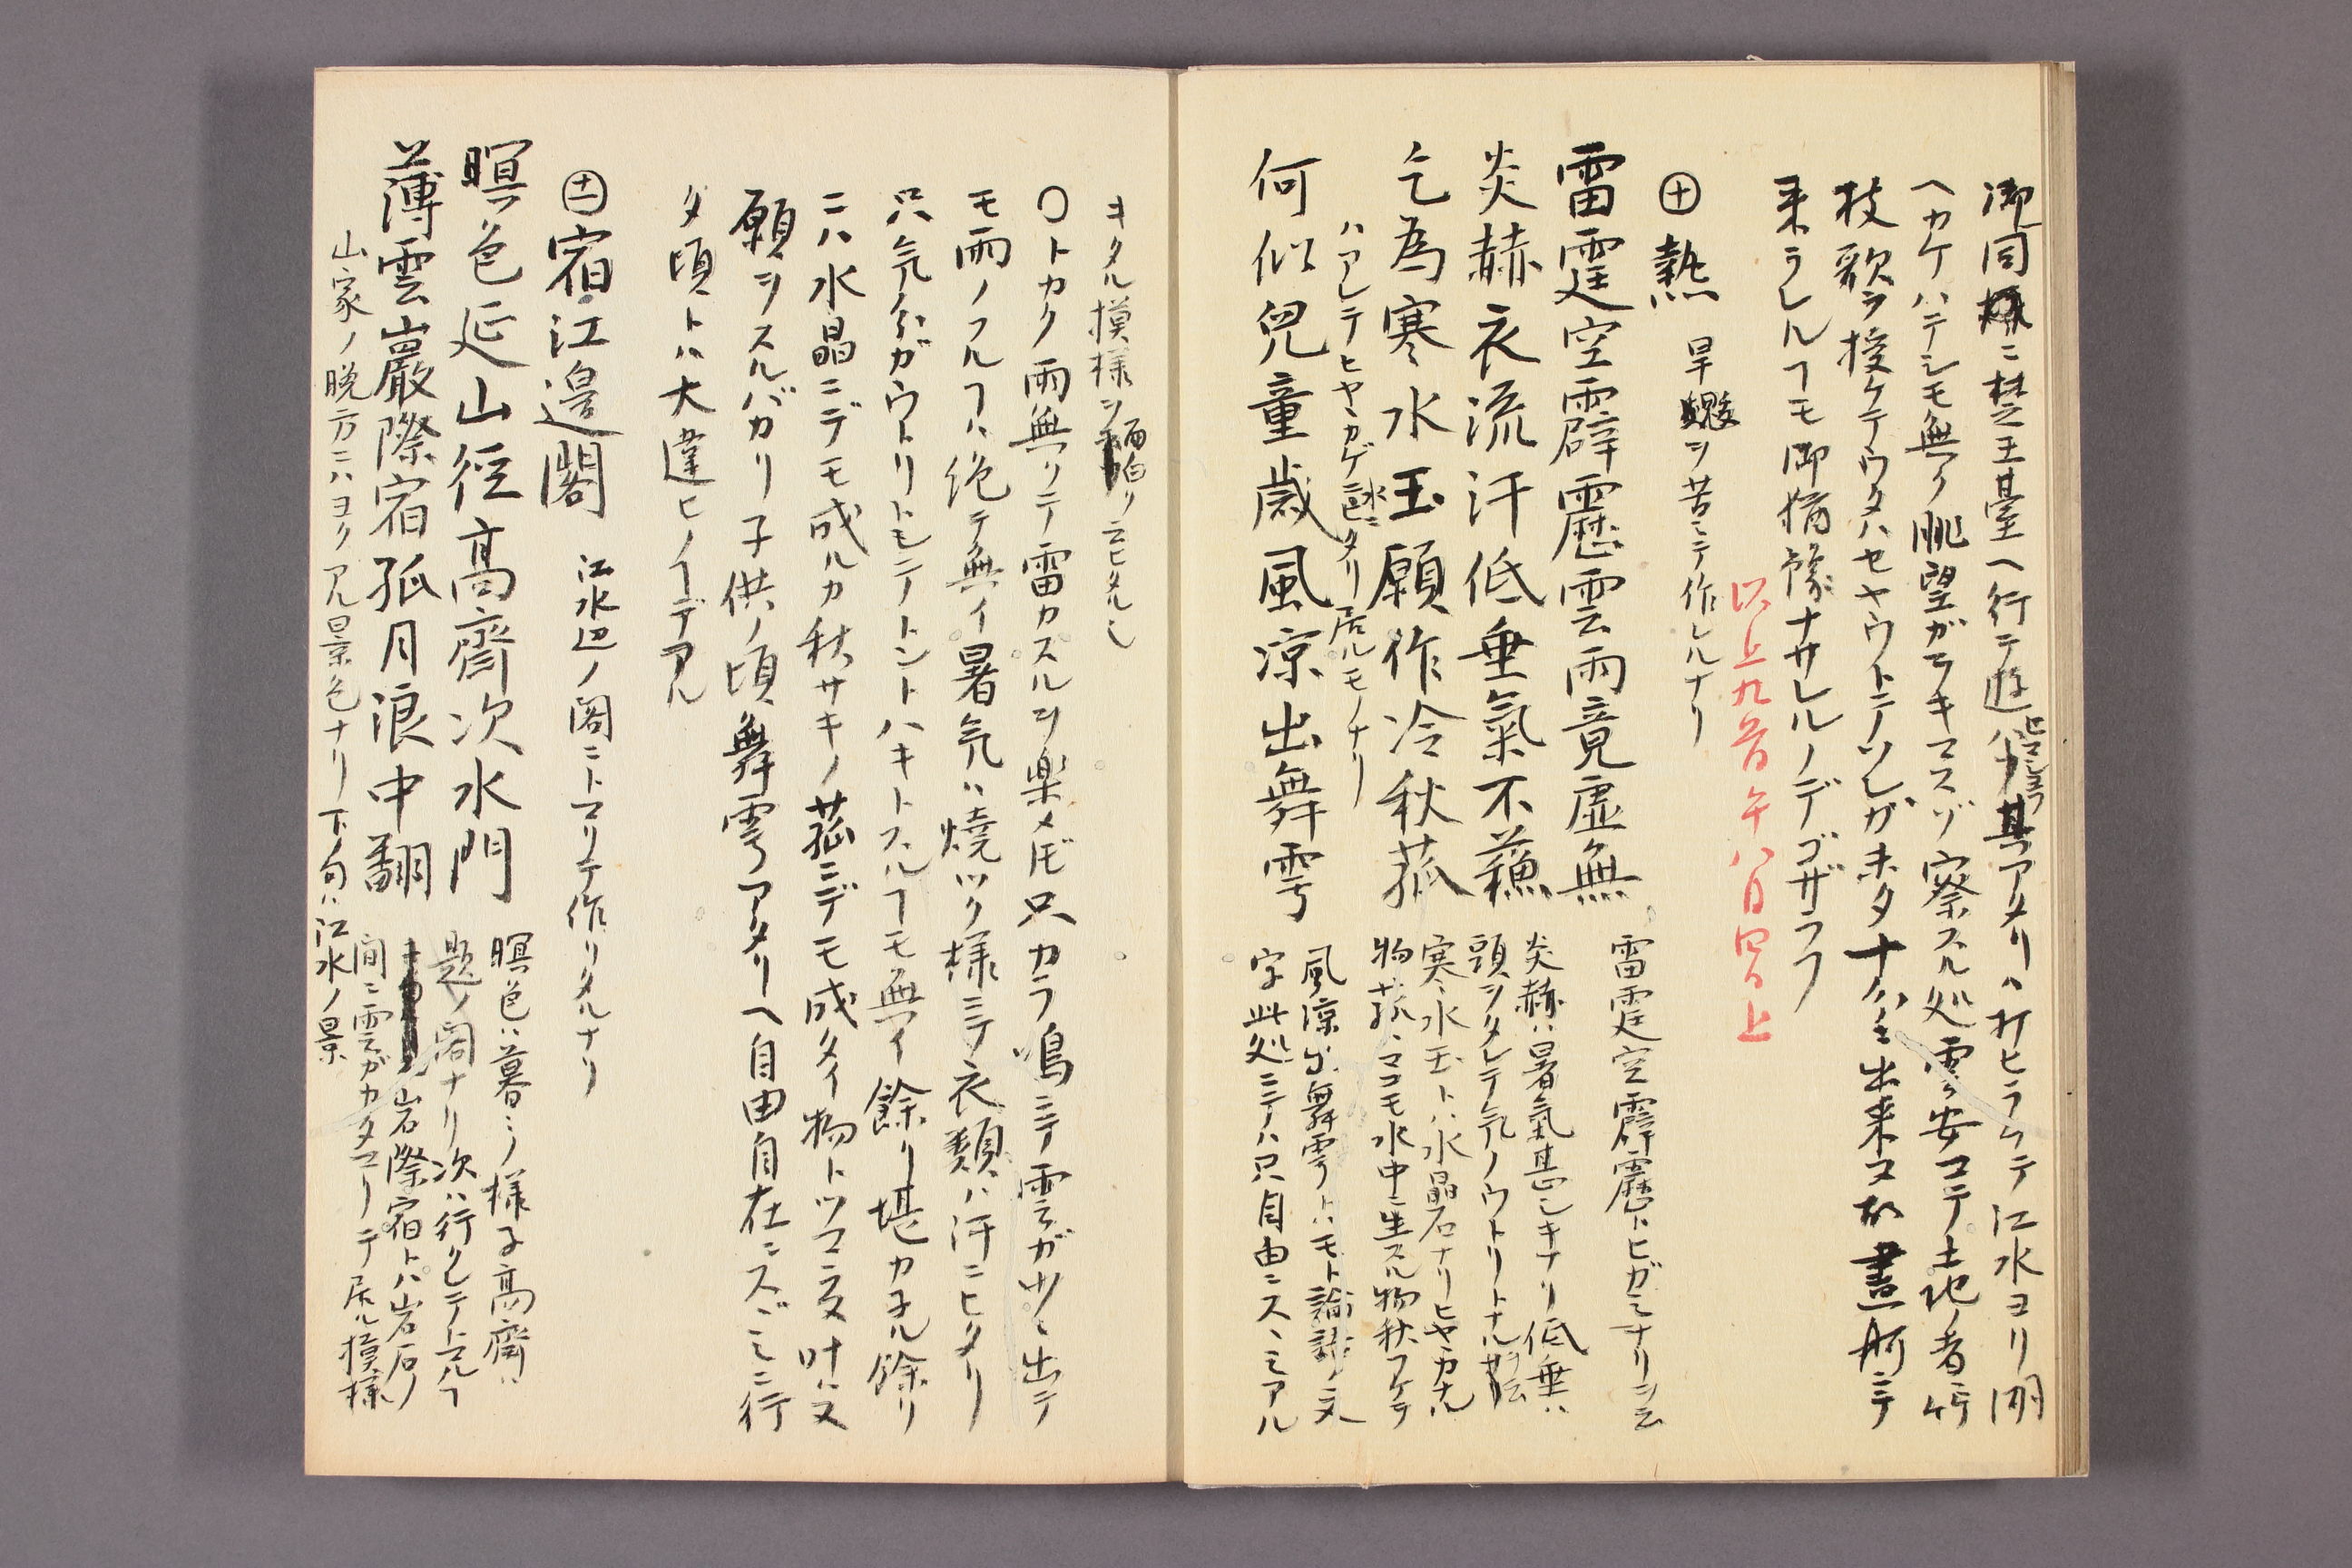 御同様ニ楚王臺ヘ行テ遊ビマシヨフ其アタリハ打ヒラケテ江水ヨリ開
ヘカケハテシモ無ク眺望ガデキマスゾ察スル処雲安コテ土地ノ者ニ竹
枝歌ヲ授ケテウタハセヤウトテツレガホタ出来ヌカ畫舸ニテ
来ラレルフモ御猶豫ナサレルノデゴザラフ
以上九首午八日四ツ上
㊉熱 旱魃ヲ苦ミテ作レルナリ
雷霆空霹靂雲雨竟虚無 雷霆空霹靂トヒガミナリシ云
炎赫衣流汗低垂氣不蘓 炎赫ハ暑氣甚シキナリ低垂ハ
頭ヲタレテ気ノウトリートナル
乞為寒水玉願作冷秋菰 寒水玉トハ水晶石ナリヒヤカナル
物菰ハマコモ水中ニ生スル物秋フケテ
ハアレテヒヤヽカゲニ水ニ
居ルモノナリ
何似兒童歳風凉出舞雩 風凉出舞雩トハモト論語ノ文
字此処ニテハ只自由ニスヾミアル
キタル摸様ヲ云ヒタルシ
〇トカク雨無クテ雷カスルヲ楽メドモ只カラ鳴ニテ雲ガ少々出テ
モ雨ノフルフハ絶テ無イ暑気ハ焼ツク様ニテ衣類ハ汗ニヒタリ
只気分ガウトリトモテトントハキトスルフモ無イ餘リ堪カヌル餘リ
ニハ水晶ニデモ成ルカ秋サキノ菰ニデモ成タイ物トツマニ及叶ハヌ
願ヲスルバカリ子供ノ頃舞雩アタリヘ自由自在ニスヾミニ行
タ頃トハ大違ヒノフデアル
宿江邊閣 江水辺ノ閣ニトマリテ作リタルナリ
暝色延山徑高齋次水門 暝色ハ暮ニ様子高齋ハ
題ノ閣ナリ次ハ行クレテトマルフ
薄雲巖際宿孤月浪中翻 岩際宿トハ岩石ノ
間ニ雲ガカタマリテ居ル摸様
山家ノ晩方ニハヨクアル景色ナリ下ノ句ハ江水ノ景